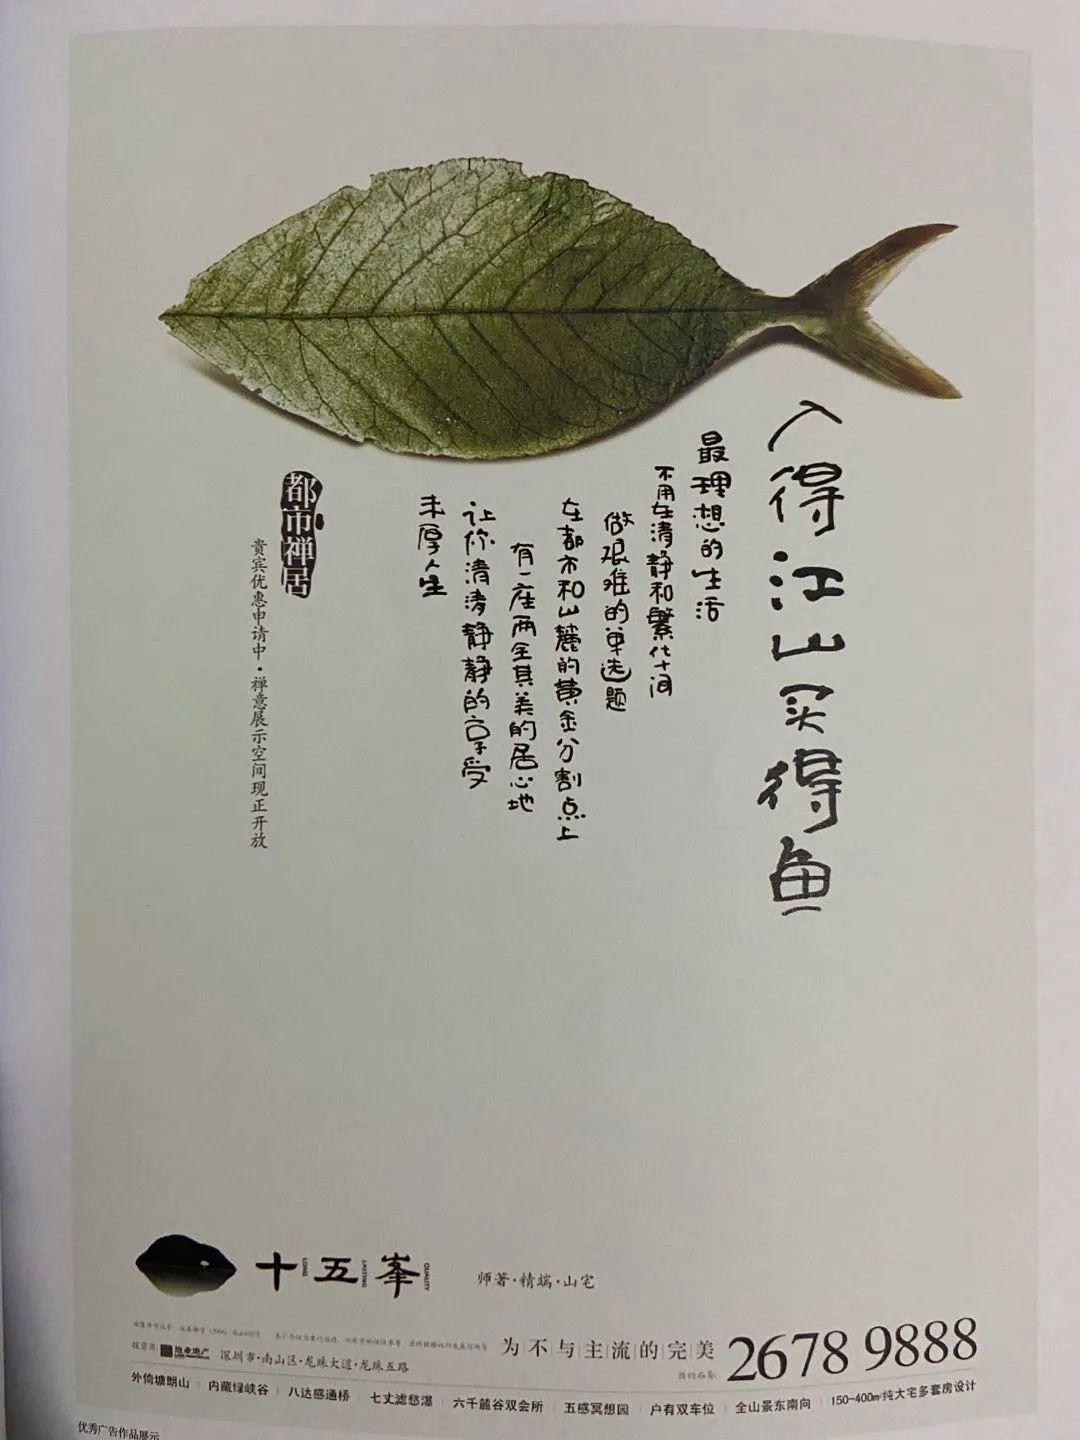 入得江山买得鱼
最理想的生活
不用在清静和繁华间
做艰难的单选题
在都市和山麓的黄金分割点上
有一座两全其美的居心地
让你清清静静的享受
丰厚人生
都市禅居
贵宾优惠申请中·禅意展示空间现正开放
十五峯
LONG
LASTING
QUALITY
师著·精端·山宅
投资商
地业地产
深圳市·南山区·龙珠大道·龙珠五路
为不与主流的完美
预约品鉴:
2678 9888
外倚塘朗山 内藏绿峡谷 八达感通桥 七丈滤愁瀑 六千麓谷双会所 五感冥想园 户有双车位 全山景东南向 150-400㎡纯大宅多套房设计
优秀广告作品展示